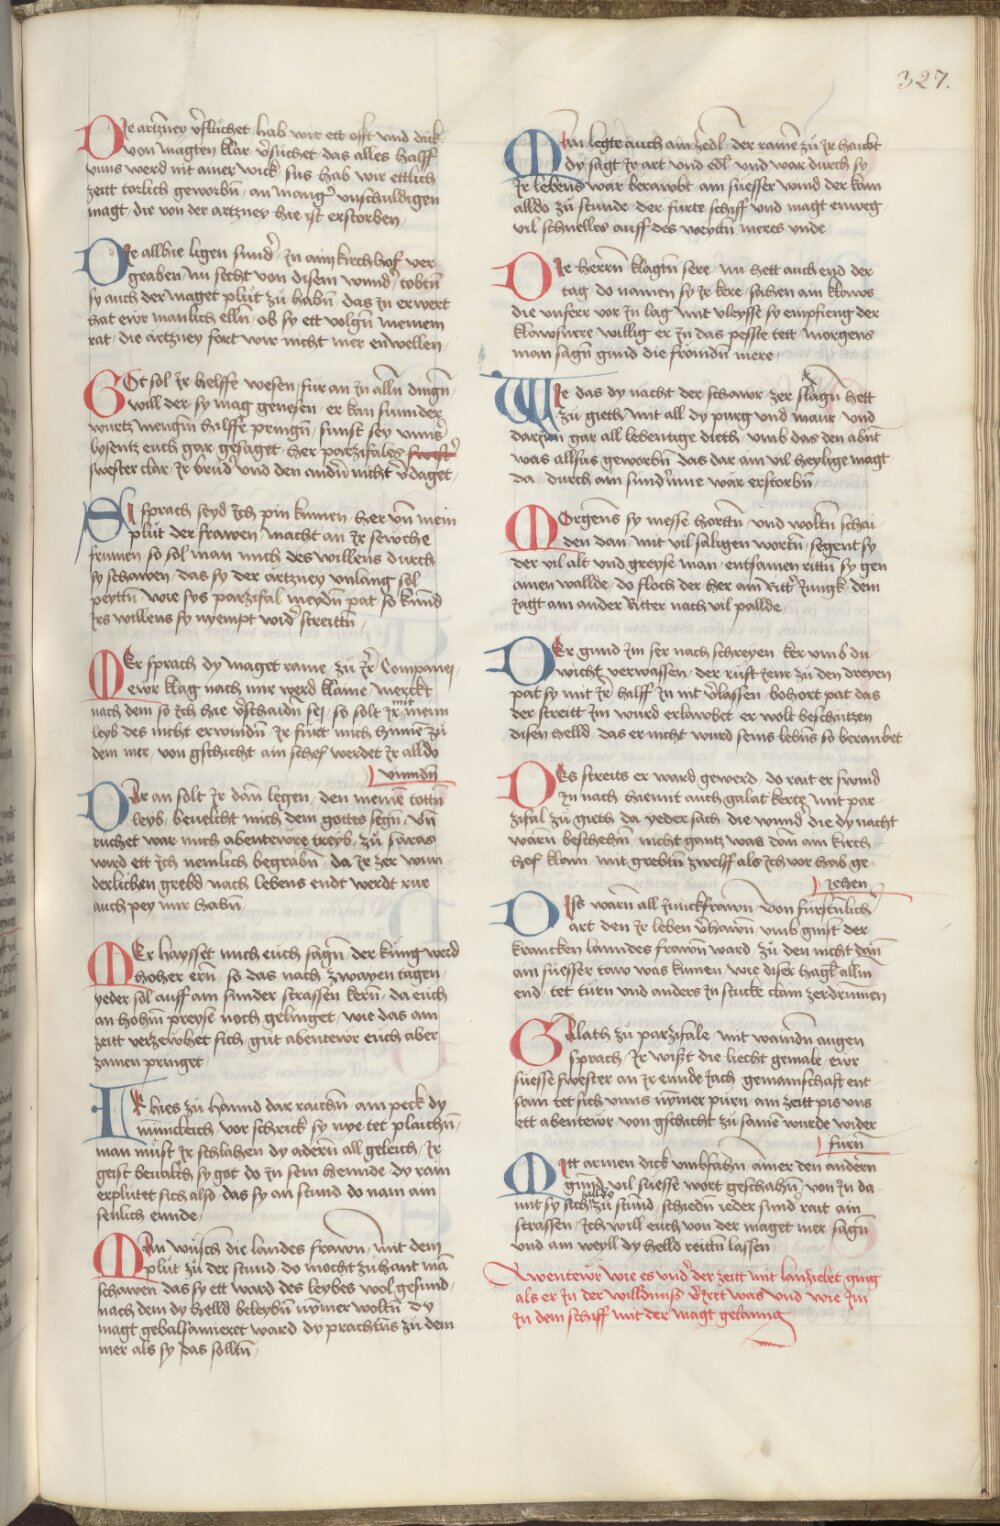 327.
Die artzney v̓fluchet / hab wir ett offt vnd dick
von magten klar v̓suchet das alles halff
vnns werd nit ainer wick / sus hab wir ettlich
zeitt torlich geworbn̄ / an mang̓ vnschuldigen
magt / die von der artzney hie ist erstorben /
Die allhie ligen sund̓ / In aim kirchhof ver
graben / nu secht von disem wund̓ / tobtn̄
sy auch der maget plut zu habn̄ / das In erwert
hat ewr manlich elln̄ / ob sy ett volgn̄ meinem
rat / die artzney fort wir nicht mer enwellen /
Got sol Ir helffe wesen / fur an In alln̄ dingn̄ /
will der / sy mag genesen / er kan sunnder
wurtz mengin̄ hilffe pringn̄ / sunst sey vnns̓
losentz euch gar gesaget / her parzifales
swester clar / Ir brud̓ vnd den andn̄ nicht v̓daget /
Si sprach seyd Ich pin kumen / her vn̄ mein
plut der frawen / macht an Ir sewche
frumen so sol man mich des willens durch
sy schawen / das sy der artzney vnlang sol
peyttn̄ / wie sys parzifal meydn̄ pat / so kund
Irs willens sy nyempt wid̓ streittn̄ /
Mer sprach dy maget raine / zu Ir̓ Companei /
ewr klag nach mir werd klaine / merckt
nach dem so Ich hie v̓schaidn̄ sej / so solt Ir mit mein
leyb des nicht erwindn̄ / Ir furt mich hinne zu
dem mer / von gschicht ain schef werdet Ir alldo
vinndn̄
Dar an solt Ir dan̄ legen / den meine totten
leyb / beuelcht mich dem gottes segn̄ / vn̄
ruchet war mich abentewre treyb / zu saras
wird ett Ich nemlich begrabn̄ / da Ir zer wun
derlichen grebd nach lebens endt werdt rue
auch pey mir habn̄ /
Mer haysset mich euch sagn̄ / der kung werd
hoher ern̄ / so das nach zwayen tagen /
yeder sol auff ain sunder strassen kern̄ / da euch
an hohm̄ preyse noch gelinget / wie das am
zeitt verzewhet sich / gut abentewr euch aber
zamen pringet /
Er hies zu hannd dar raichn̄ ain peck dy
mineleich / vor schrick sy nye tet plaichn̄ /
man must Ir schlahen dy adern̄ all geleich / Ir
geist beualch sy got do In sein hennde / dy rain
erplutet sich also / das sy an stund do nam ain
senlich ennde /
Man wusch die landes frawn̄ / mit dem
plut zu der stund / do mocht zuhant ma̅
schawen das sy ett ward des leybes wol gesund /
nach dem dy helld beleybn̄ nymer woltn̄ / dy
magt gebalsamieret ward / dy prachtns zu dem
mer als sy das solltn̄ /
Man legte auch ain zedl / der raine zu Ir haubt
dy sagt Ir art vnd edl / vnd war durch sy
Ir lebend war beraubt / ain suesser wind der kam
alldo zu stunde / der furte schiff vnd magt enweg /
vil schnelles auff des weytn̄ meres vnde /
Die herren klagtn̄ sere / nu hett auch end der
tag / do namen sy Ir kere / sahen ain klaws
die vnferr vor In lag / mit vleysse sy empfieng der
klawsnere / willig er In das peste tett / morgens
man sagn̄ gund die fromdn̄ mere /
Wie das dy nacht der schawr zer slagn̄ hett
zu gieth / mit all dy purg vnd maur / vnd
darzun gar all lebentige dieth / vmb das den abnt
was allsus geworbn̄ / das dar am vil heylige magt /
da durch ain sund̓inne war erstorbn̄ /
Morgens sy messe hortn̄ / vnd woltn̄ schai
den dan / mit vil saligen wortn̄ / segent sy
der vil alt vnd greyse man / entsamen rittn̄ sy gen
ainen wallde / do floch der her ain Ritt̓ Iungk / dem
Iagt am ander Ritter nach vil pallde /
Der gund Im ser nach schreyen / ker vmb du
wicht verwassen / der rufft enir zu den dreyen
pat sy mit Ir hilff In nit v̓lassen / bohort pat das
der streitt Im wurd erlawbet / er wolt beschutzen
disen helld / das er nicht wurd seins lebns so beraubet /
Des streits er ward gewerd / do rait er swind
In nach / hiemit auch galat kerte mit par
zifal zu gieth / da yeder sach die wund̓ die dy nacht
warn̄ beschehn̄ / nicht gantz was dan̄ am kirch
hof klain / mit grebtn̄ zwelff als Ich vor hab ge
Iehen
Die warn̄ all Iunckfrawn̄ / von furstnlich̓
art / den Ir leben v̓hawn̄ / vmb gunst der
krancken lanndes frawn̄ ward / zu den nicht dan̄
am suesser taw was kumen / wie diser hagl allin
end / tet turn vnd anders In stucke clain zerdrumen
Galath zu parzifale / mit wainden augen
sprach / Ir wisst die liecht gemale / ewr
suesse swester an Ir ennde Iach / gemainschaft ent
sam tet sich vnns nymer purn / am zeitt pis vns
ett abentewr von gschicht zu same wurde wider
furn̄
Mitt armen dick vmbfahn̄ / ainer den andern
gund / vil suesse wort geschahn̄ / von In da
mit sy sich alldo zu stund / schiedn̄ ieder sund̓ rait ain
strassen / Ich will euch von der maget mer sagn̄
vnd am weyll dy helld reittn̄ lassen /
Awentewr wie es vnd̓ der zeitt mit lanzilet ging
als er In der willdnuss v̓irret was vnd wie Im
In dem schiff mit der magt gelanng